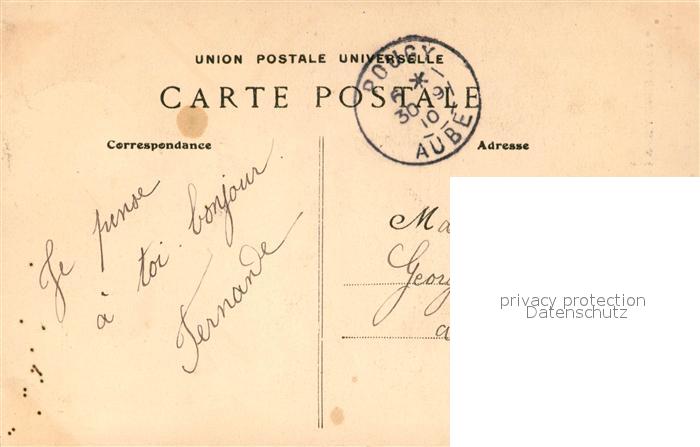 UNION POSTALE UNIVERSELLE
CARTE POSTALE
POUGY
6 *
30-9
10
AUBE
Correspondance
Adresse
Je pense
à toi. bonjour.
Fernande
Ma
Georg
a
privacy protection
Datenschutz